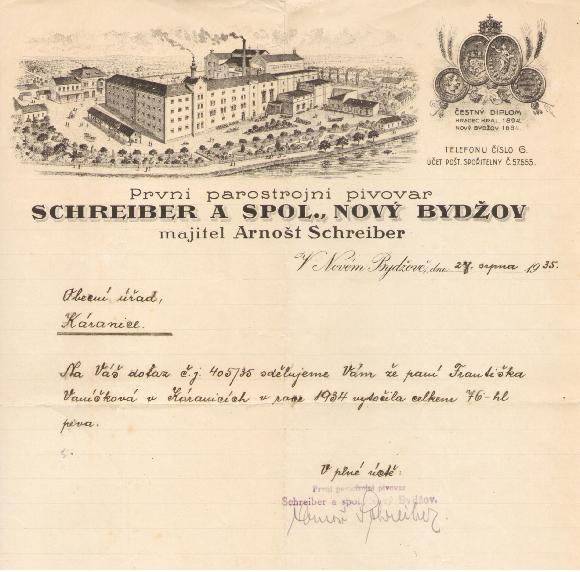 ČESTNÝ DIPLOM
HRADEC KRÁL. 1894.
NOVÝ BYDŽOV 1884.
TELEFONU ČÍSLO 6.
ÚČET POŠT. SPOŘITELNY Č. 57.555.
První parostrojní pivovar
SCHREIBER A SPOL., NOVÝ BYDŽOV
majitel Arnošt Schreiber
V Novém Bydžově, dne 27. srpna 1935.
Obecní úřad,
Káranice.
Na Váš dotaz č.j. 405/35 sdělujeme Vám že paní Františka
Vaníčková v Káranicích v roce 1934 vytočila celkem 76-hl
piva.
V plné úctě:
První parostrojní pivovar
Schreiber a spol. Nový Bydžov.
Arnošt Schreiber